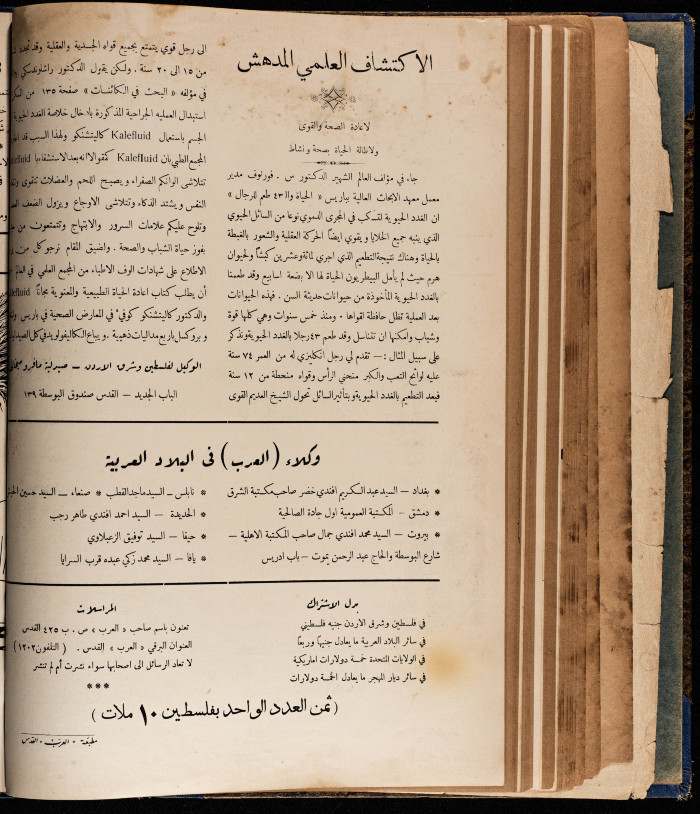 الاكتشاف العلمي المدهش
لاعادة الصحة والقوى
ولاطالة الحياة بصحة ونشاط
جاء في مؤلف العالم الشهير الدكتور س . فورنوف مدير
معمل معهد الابحاث العالية بباريس « الحياة والـ ٤٣ طعم للرجال »
ان الغدد الحيوية لتسكب في المجرى الدموي نوعا من السائل الحيوي
الذي ينبه جميع الخلايا ويقوي ايضاً الحركة العقلية والشعور بالغبطة
بالحياة وهناك نتيجة التطعيم الذي اجري لمائة وعشرين كبشاً ولحيوان
هرم حيث لم يأمل البيطريون الحياة لها الا بضعة اسابيع وقد طعمنا
بالغدد الحيوية المأخوذة من حيوانات حديثة السن . فهذه الحيوانات
بعد العملية تظل حافظة لقواها . ومنذ خمس سنوات وهي كلها قوة
وشباب وامكنها ان تتناسل وقد طعم ٤٣ رجلا بالغدد الحيوية ونذكر
على سبيل المثال : — تقدم لي رجل انكليزي له من العمر ٧٤ سنة
عليه لوائح التعب والكبر منحني الرأس وقواه منحطة من ١٢ سنة
فبعد التطعيم بالغدد الحيوية وبتأثير السائل تحول الشيخ العديم القوى
الى رجل قوي يتمتع بجميع قواه الجسدية والعقلية وقد تجدد
من ١٥ الى ٢٠ سنة . ولكن يقول الدكتور راشلوندسكي
في مؤلفه « البحث في الكائنات » صفحة ١٣٥ من
استبدال العمليه الجراحية المذكورة بادخال خلاصة الغدد الحيوية
الجسم باستعمال Kalefluid كاليتشنكو ولهذا السبب قد
المجمع الطبي بان Kalefluid كمقو لانه بعد الاستشفاء بـ
تتلاشى الوانكم الصفراء ويصبح اللحم والعضلات تتقوى
النفس ويشتد الذكاء وتتلاشى الاوجاع ويزول الضعف
وتلوح عليكم علامات السرور والابتهاج وتتمتعون من
بفوز حياة الشباب والصحة . ولضيق المقام نرجو كل من
الاطلاع على شهادات الوف الاطباء من المجمع العلمي في العالم
أن يطلب كتاب اعادة الحياة الطبيعية والمعنوية مجاناً
والدكتور كاليتشنكو كوفي في المعارض الصحية في باريس
و بروكسل باربع مداليات ذهبية . ويباع الكاليفولويد في كل
الوكيل لفلسطين وشرق الاردن — صيدلية مافرو
الباب الجديد — القدس صندوق البوسطة ١٣٩
وكلاء ( العرب ) في البلاد العربية
* بغداد — السيد عبد الكريم افندي خضر صاحب مكتبة الشرق
* دمشق — المكتبة العمومية اول جادة الصالحية
* بيروت — السيد محمد افندي جمال صاحب المكتبة الاهلية —
شارع البوسطة والحاج عبد الرحمن يموت — باب ادريس
* نابلس — السيد ماجد القطب * صنعاء — السيد حسين
* الحديدة — السيد احمد افندي طاهر رجب
* حيفا — السيد توفيق الزعبلاوي
* يافا — السيد محمد زكي عبده قرب السرايا
بدل الاشتراك
في فلسطين وشرق الاردن جنيه فلسطيني
في سائر البلاد العربية ما يعادل جنيهاً وربعاً
في الولايات المتحدة خمسة دولارات اماريكية
في سائر ديار المهجر ما يعادل الخمسة دولارات
المراسلات
تعنون باسم صاحب « العرب » ص . ب ٤٢٥ القدس
العنوان البرقي « العرب » القدس . ( التلفون ١٢٠٢ )
لا تعاد الرسائل الى اصحابها سواء نشرت أم لم تنشر
***
( ثمن العدد الواحد بفلسطين ١٠ ملات )
مطبعة • العرب • القدس